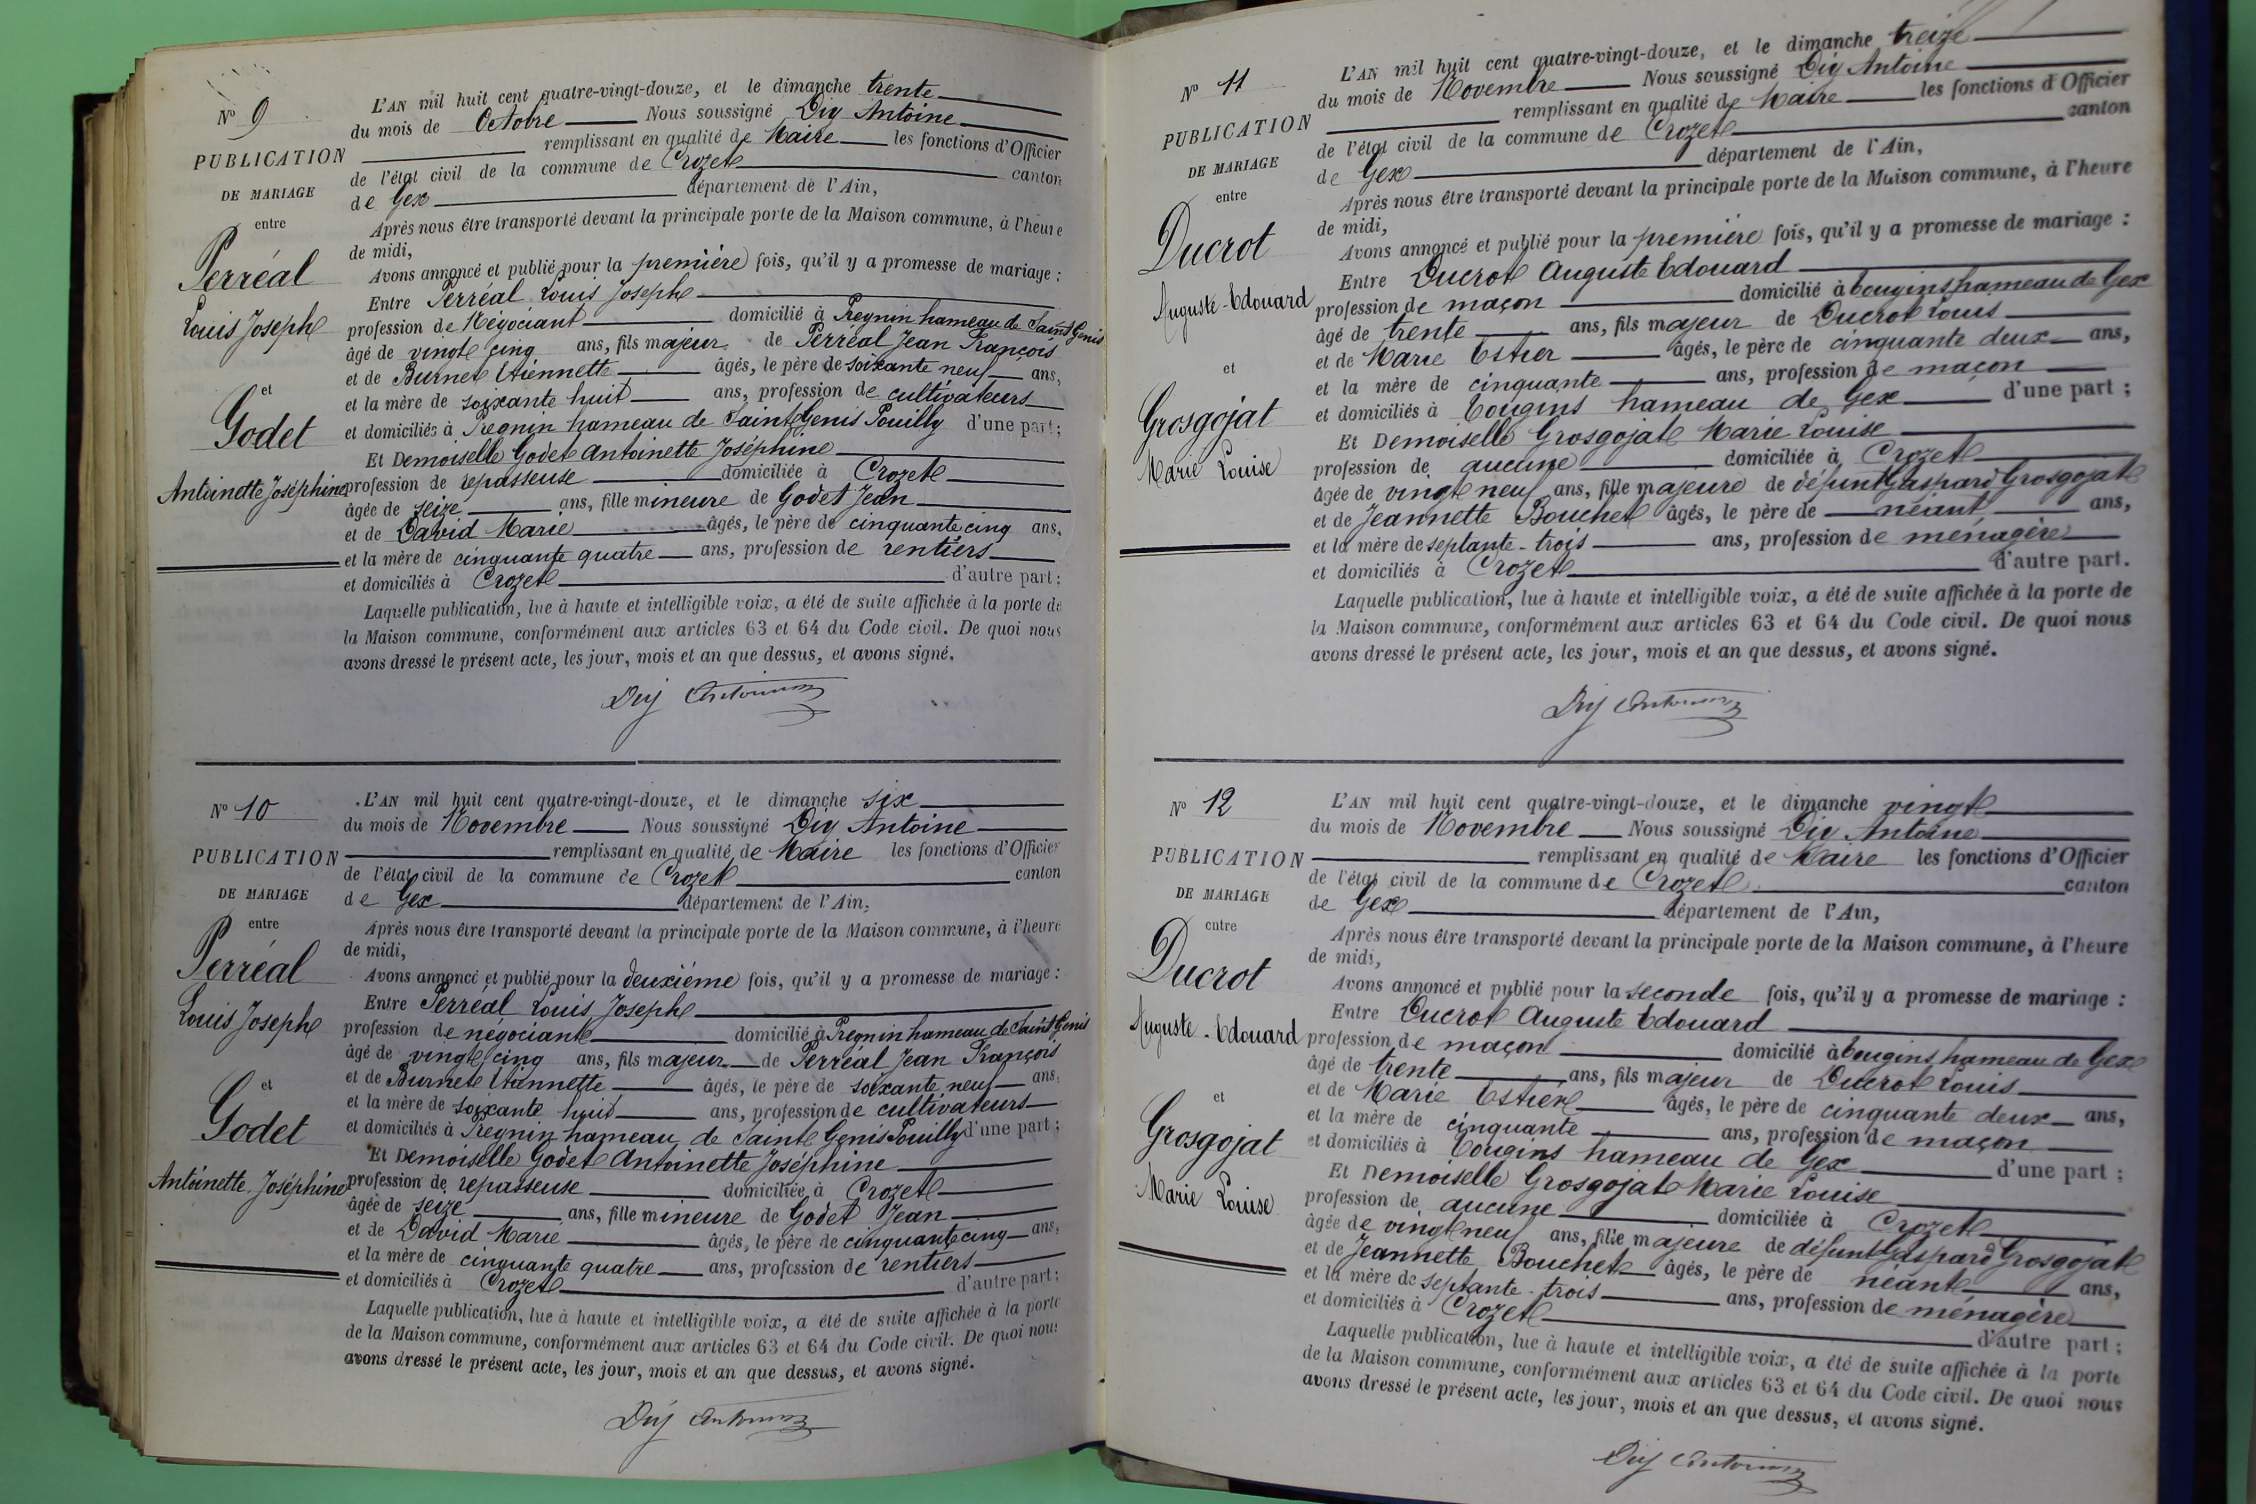 Nº 9
PUBLICATION
DE MARIAGE
entre
Perréal
Louis Joseph
et
Godet
Antoinette Joséphine
L'AN mil huit cent quatre-vingt-douze, et le dimanche trente
du mois de Octobre Nous soussigné Diy Antoine
remplissant en qualité de Maire les fonctions d'Officier
de l'état civil de la commune de Crozet canton
de Gex département de l'Ain,
Après nous être transporté devant la principale porte de la Maison commune, à l'heure
de midi,
Avons annoncé et publié pour la première fois, qu'il y a promesse de mariage :
Entre Perréal Louis Joseph
profession de Négociant domicilié à Pregnin hameau de Saint Genis
âgé de vingt cinq ans, fils majeur de Perréal Jean François
et de Burnet Etiennette âgés, le père de soixante neuf ans,
et la mère de soixante huit ans, profession de cultivateurs
et domiciliés à Pregnin hameau de Saint Genis Pouilly d'une part;
Et Demoiselle Godet Antoinette Joséphine
profession de repasseuse domiciliée à Crozet
âgée de seize ans, fille mineure de Godet Jean
et de David Marie âgés, le père de cinquante cinq ans,
et la mère de cinquante quatre ans, profession de rentiers
et domiciliés à Crozet d'autre part;
Laquelle publication, lue à haute et intelligible voix, a été de suite affichée à la porte de
la Maison commune, conformément aux articles 63 et 64 du Code civil. De quoi nous
avons dressé le présent acte, les jour, mois et an que dessus, et avons signé.
Diy Antoine
Nº 10
PUBLICATION
DE MARIAGE
entre
Perréal
Louis Joseph
et
Godet
Antoinette Joséphine
L'AN mil huit cent quatre-vingt-douze, et le dimanche six
du mois de Novembre Nous soussigné Diy Antoine
remplissant en qualité de Maire les fonctions d'Officier
de l'état civil de la commune de Crozet canton
de Gex département de l'Ain,
Après nous être transporté devant la principale porte de la Maison commune, à l'heure
de midi,
Avons annoncé et publié pour la deuxième fois, qu'il y a promesse de mariage :
Entre Perréal Louis Joseph
profession de négociant domicilié à Pregnin hameau de Saint Genis
âgé de vingt cinq ans, fils majeur de Perréal Jean François
et de Burnet Etiennette âgés, le père de soixante neuf ans,
et la mère de soixante huit ans, profession de cultivateurs
et domiciliés à Pregnin hameau de Saint Genis Pouilly d'une part;
Et Demoiselle Godet Antoinette Joséphine
profession de repasseuse domiciliée à Crozet
âgée de seize ans, fille mineure de Godet Jean
et de David Marie âgés, le père de cinquante cinq ans,
et la mère de cinquante quatre ans, profession de rentiers
et domiciliés à Crozet d'autre part;
Laquelle publication, lue à haute et intelligible voix, a été de suite affichée à la porte
de la Maison commune, conformément aux articles 63 et 64 du Code civil. De quoi nous
avons dressé le présent acte, les jour, mois et an que dessus, et avons signé.
Diy Antoine
Nº 11
PUBLICATION
DE MARIAGE
entre
Ducrot
Auguste-Edouard
et
Grosgojat
Marie Louise
L'AN mil huit cent quatre-vingt-douze, et le dimanche treize
du mois de Novembre Nous soussigné Diy Antoine
remplissant en qualité de Maire les fonctions d'Officier
de l'état civil de la commune de Crozet canton
de Gex département de l'Ain,
Après nous être transporté devant la principale porte de la Maison commune, à l'heure
de midi,
Avons annoncé et publié pour la première fois, qu'il y a promesse de mariage :
Entre Ducrot Auguste Edouard
profession de maçon domicilié à Tougins hameau de Gex
âgé de trente ans, fils majeur de Ducrot Louis
et de Marie Estier âgés, le père de cinquante deux ans,
et la mère de cinquante ans, profession de maçon
et domiciliés à Tougins hameau de Gex d'une part ;
Et Demoiselle Grosgojat Marie Louise
profession de aucune domiciliée à Crozet
âgée de vingt neuf ans, fille majeure de défunt Gaspard Grosgojat
et de Jeannette Bouchet âgés, le père de néant ans,
et la mère de septante-trois ans, profession de ménagère
et domiciliés à Crozet d'autre part.
Laquelle publication, lue à haute et intelligible voix, a été de suite affichée à la porte de
la Maison commune, conformément aux articles 63 et 64 du Code civil. De quoi nous
avons dressé le présent acte, les jour, mois et an que dessus, et avons signé.
Diy Antoine
Nº 12
PUBLICATION
DE MARIAGE
entre
Ducrot
Auguste-Edouard
et
Grosgojat
Marie Louise
L'AN mil huit cent quatre-vingt-douze, et le dimanche vingt
du mois de Novembre Nous soussigné Diy Antoine
remplissant en qualité de Maire les fonctions d'Officier
de l'état civil de la commune de Crozet canton
de Gex département de l'Ain,
Après nous être transporté devant la principale porte de la Maison commune, à l'heure
de midi,
Avons annoncé et publié pour la seconde fois, qu'il y a promesse de mariage :
Entre Ducrot Auguste Edouard
profession de maçon domicilié à Tougins hameau de Gex
âgé de trente ans, fils majeur de Ducrot Louis
et de Marie Estier âgés, le père de cinquante deux ans,
et la mère de cinquante ans, profession de maçon
et domiciliés à Tougins hameau de Gex d'une part ;
Et Demoiselle Grosgojat Marie Louise
profession de aucune domiciliée à Crozet
âgée de vingt neuf ans, fille majeure de défunt Gaspard Grosgojat
et de Jeannette Bouchet âgés, le père de néant ans,
et la mère de septante-trois ans, profession de ménagère
et domiciliés à Crozet d'autre part ;
Laquelle publication, lue à haute et intelligible voix, a été de suite affichée à la porte
de la Maison commune, conformément aux articles 63 et 64 du Code civil. De quoi nous
avons dressé le présent acte, les jour, mois et an que dessus, et avons signé.
Diy Antoine